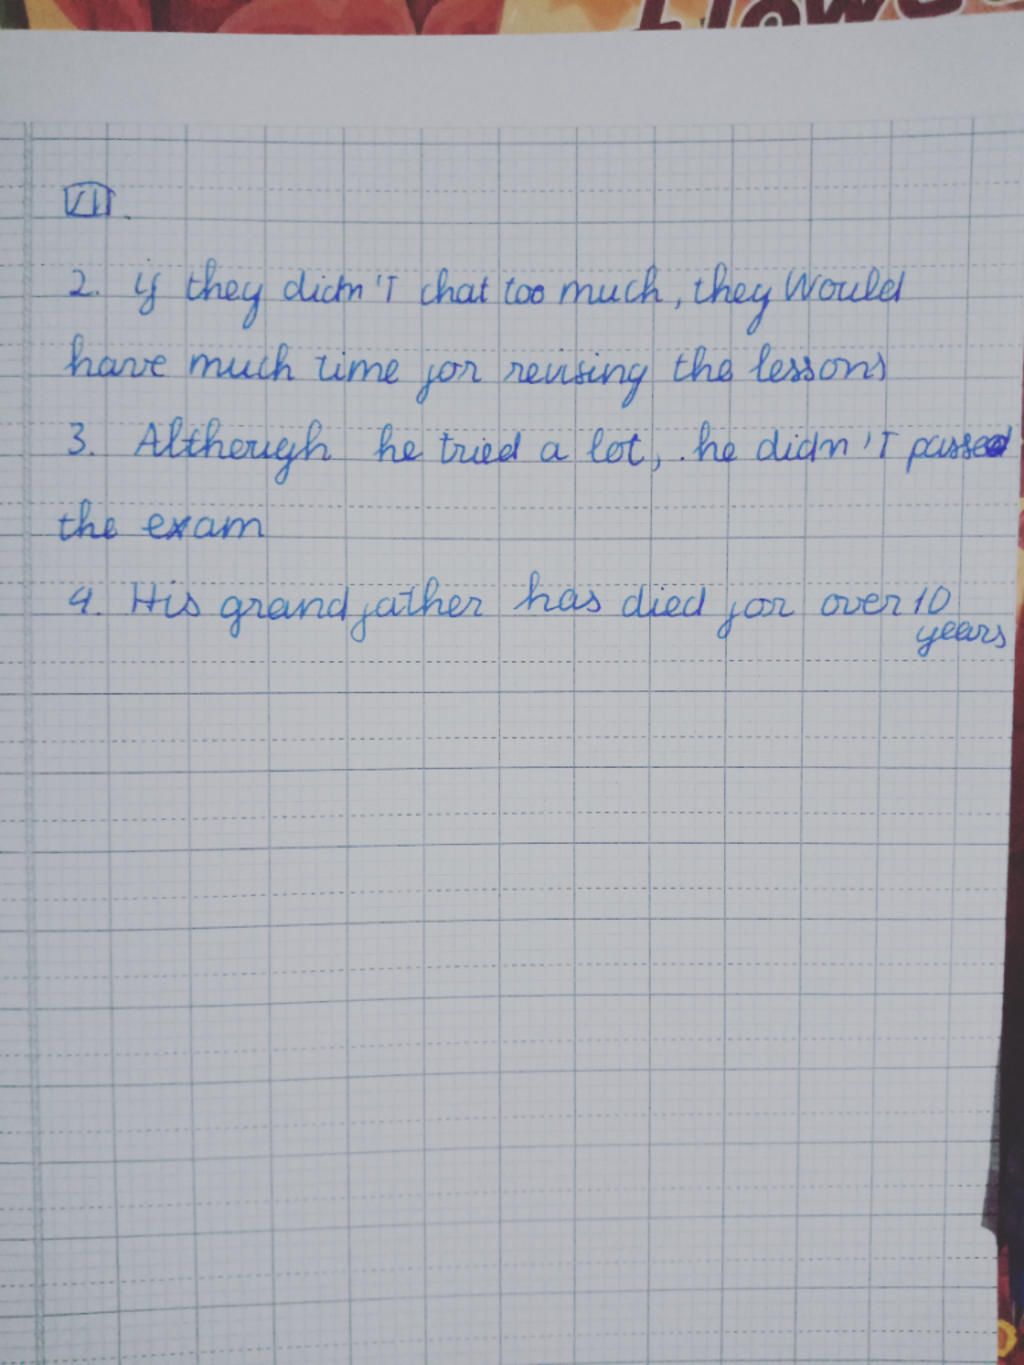 Flowe
VII.
2. if they didn't chat too much, they Would
have much time for revising the lessons
3. Although he tried a lot, he didn't passed
the exam
4. His grandfather has died for over 10
years